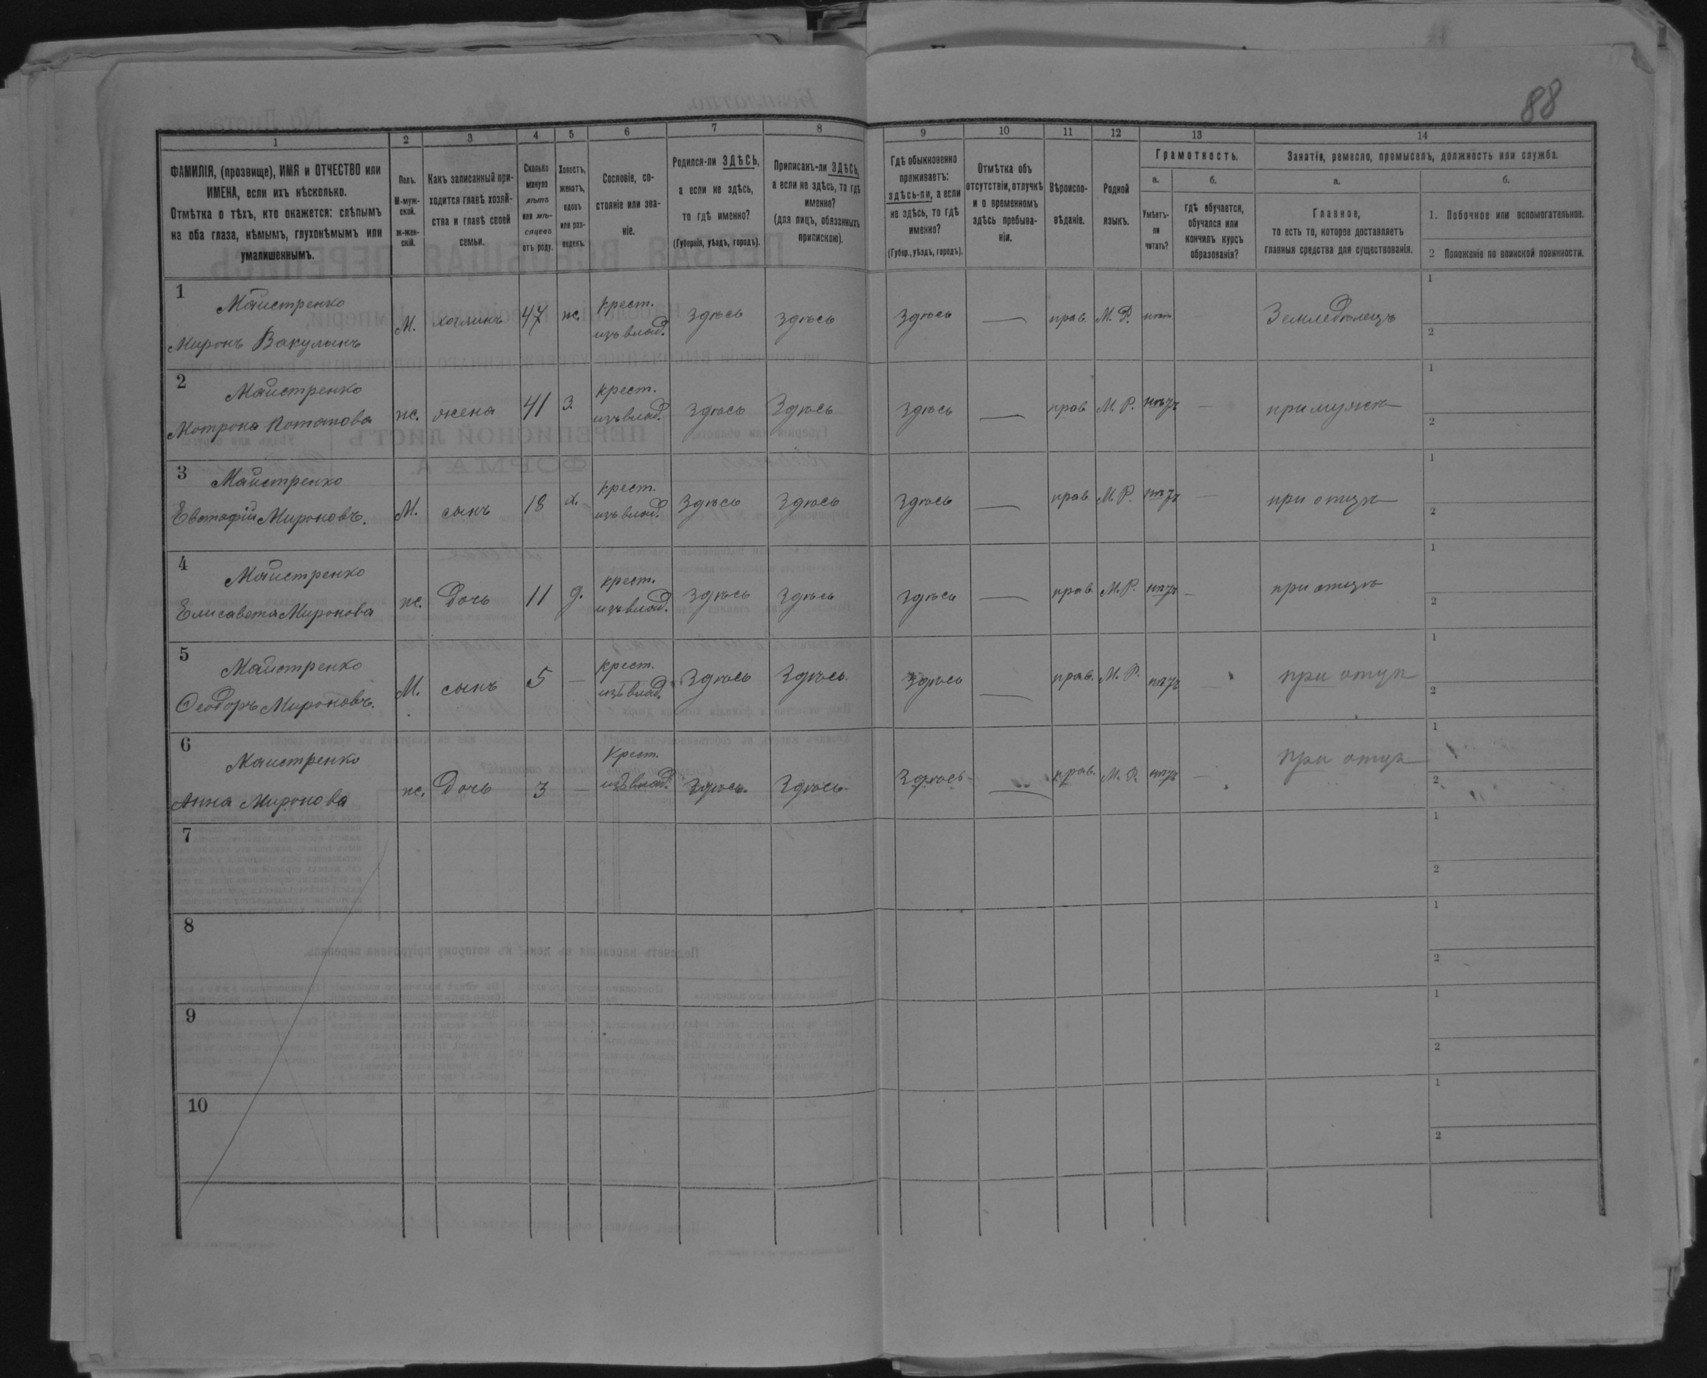 88
1 2 3 4 5 6 7 8 9 10 11 12 13 14
ФАМИЛІЯ, (прозвище), ИМЯ и ОТЧЕСТВО или
ИМЕНА, если ихъ нѣсколько.
Отмѣтка о тѣхъ, кто окажется: слѣпымъ
на оба глаза, нѣмымъ, глухонѣмымъ или
умалишеннымъ.
Полъ.
М-муж-
ской.
ж-жен-
скій.
Какъ записанный при-
ходится главѣ хозяй-
ства и главѣ своей
семьи.
Сколько
минуло
лѣтъ
или мѣ-
сяцевъ
отъ роду.
Холостъ,
женатъ,
вдовъ
или раз-
веденъ.
Сословіе, со-
стояніе или зва-
ніе.
Родился-ли ЗДѢСЬ,
а если не здѣсь,
то гдѣ именно?
(Губернія, уѣздъ, городъ).
Приписанъ-ли ЗДѢСЬ,
а если не здѣсь, то гдѣ
именно?
(для лицъ, обязанныхъ
припискою).
Гдѣ обыкновенно
проживаетъ:
здѣсь-ли, а если
не здѣсь, то гдѣ
именно?
(Губер., уѣздъ, городъ).
Отмѣтка объ
отсутствіи, отлучкѣ
и о временномъ
здѣсь пребыва-
ніи.
Вѣроиспо-
вѣданіе.
Родной
языкъ.
Грамотность.
а. б.
Умѣетъ-
ли
читать?
гдѣ обучается,
обучался или
кончилъ курсъ
образованія?
Занятіе, ремесло, промыселъ, должность или служба.
а. б.
Главное,
то есть то, которое доставляетъ
главныя средства для существованія.
1. Побочное или вспомогательное.
2 Положеніе по воинской повинности.
1 Майстренко
Миронъ Вакулинъ М. хозяинъ 47 ж. крест. изъ влад. здѣсь здѣсь здѣсь — прав. М. Р. — Земледѣлецъ 1 2
2 Майстренко
Мотрона Потапова ж. жена 41 З. крест. изъ влад. здѣсь Здѣсь здѣсь — прав. М. Р. нѣтъ — при мужѣ 1 2
3 Майстренко
Евстафій Мироновъ. М. сынъ 18 х. крест. изъ влад. Здѣсь Здѣсь здѣсь — прав. М. Р. нѣтъ — при отцѣ 1 2
4 Майстренко
Елисавета Миронова ж. Дочь 11 д. крест. изъ влад. здѣсь здѣсь здѣсь — прав. М. Р. нѣтъ — при отцѣ 1 2
5 Майстренко
Ѳеодоръ Мироновъ. М. сынъ 5 — крест. изъ влад. Здѣсь Здѣсь Здѣсь — прав. М. Р. нѣтъ — при отцѣ 1 2
6 Майстренко
Анна Миронова ж. Дочь 3 — Крест. изъ влад. Здѣсь. Здѣсь Здѣсь — прав. М. Р. нѣтъ — при отцѣ 1 2
7 1 2
8 1 2
9 1 2
10 1 2